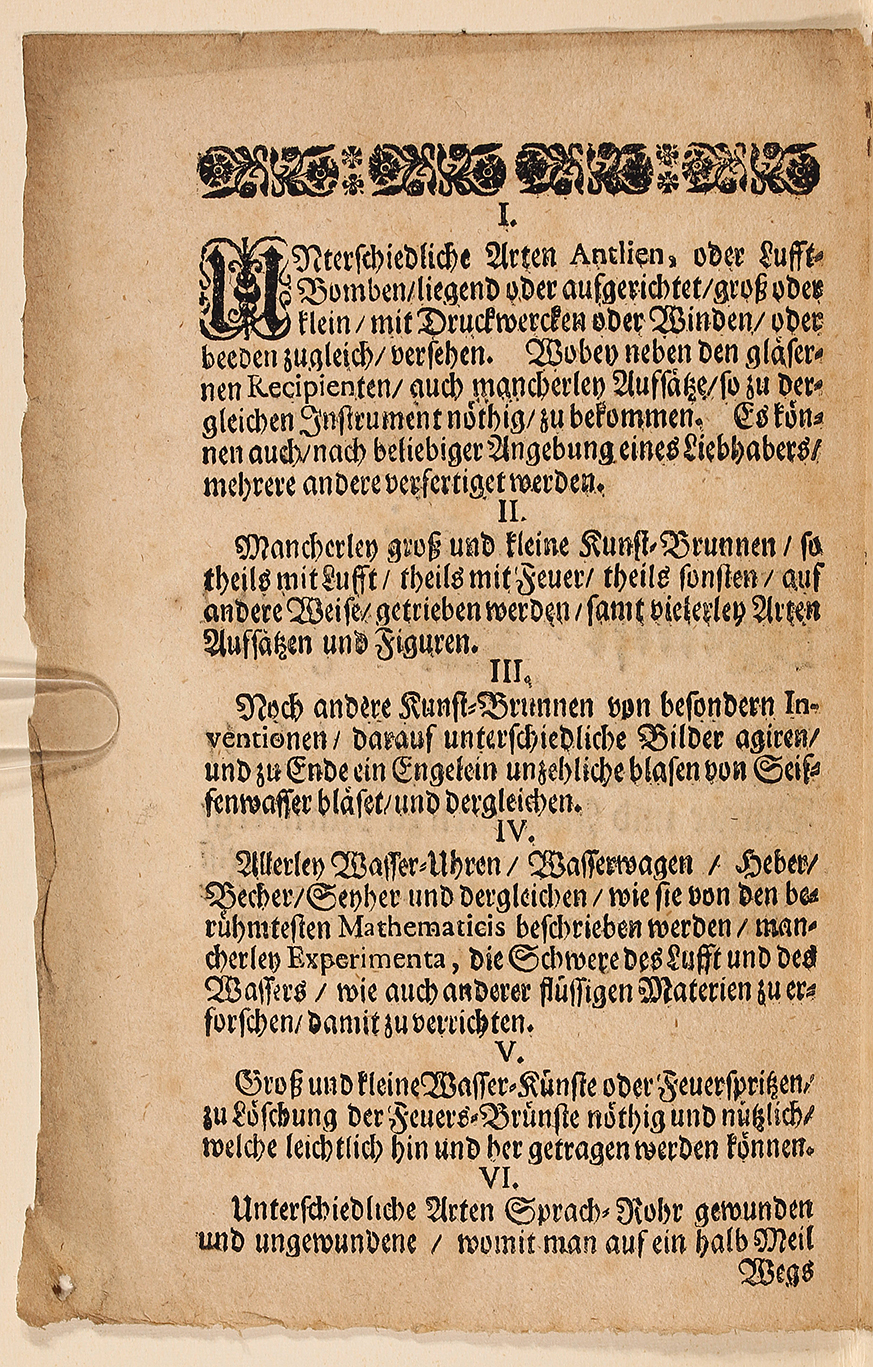 I.
UNterschiedliche Arten Antlien, oder Lufft-
Bomben/liegend oder aufgerichtet/groß oder
klein/ mit Druckwercken oder Winden/ oder
beeden zugleich/ versehen. Wobey neben den gläser-
nen Recipienten/ auch mancherley Aufsätze/so zu der-
gleichen Instrument nöthig/ zu bekommen. Es kön-
nen auch/nach beliebiger Angebung eines Liebhabers/
mehrere andere verfertiget werden.
II.
Mancherley groß und kleine Kunst-Brunnen / so
theils mit Lufft / theils mit Feuer/ theils sonsten / auf
andere Weise/ getrieben werden / samt vielerley Arten
Aufsätzen und Figuren.
III.
Noch andere Kunst-Brunnen von besondern In-
ventionen / darauf unterschiedliche Bilder agiren/
und zu Ende ein Engelein unzehliche blasen von Seif-
fenwasser bläset/und dergleichen.
IV.
Allerley Wasser-Uhren / Wasserwagen / Heber/
Becher/Seyher und dergleichen / wie sie von den be-
rühmtesten Mathematicis beschrieben werden / man-
cherley Experimenta, die Schwere des Lufft und des
Wassers / wie auch anderer flüssigen Materien zu er-
forschen/ damit zu verrichten.
V.
Groß und kleine Wasser-Künste oder Feuerspritzen/
zu Löschung der Feuers-Brünste nöthig und nützlich/
welche leichtlich hin und her getragen werden können.
VI.
Unterschiedliche Arten Sprach-Rohr gewunden
und ungewundene / womit man auf ein halb Meil
Wegs